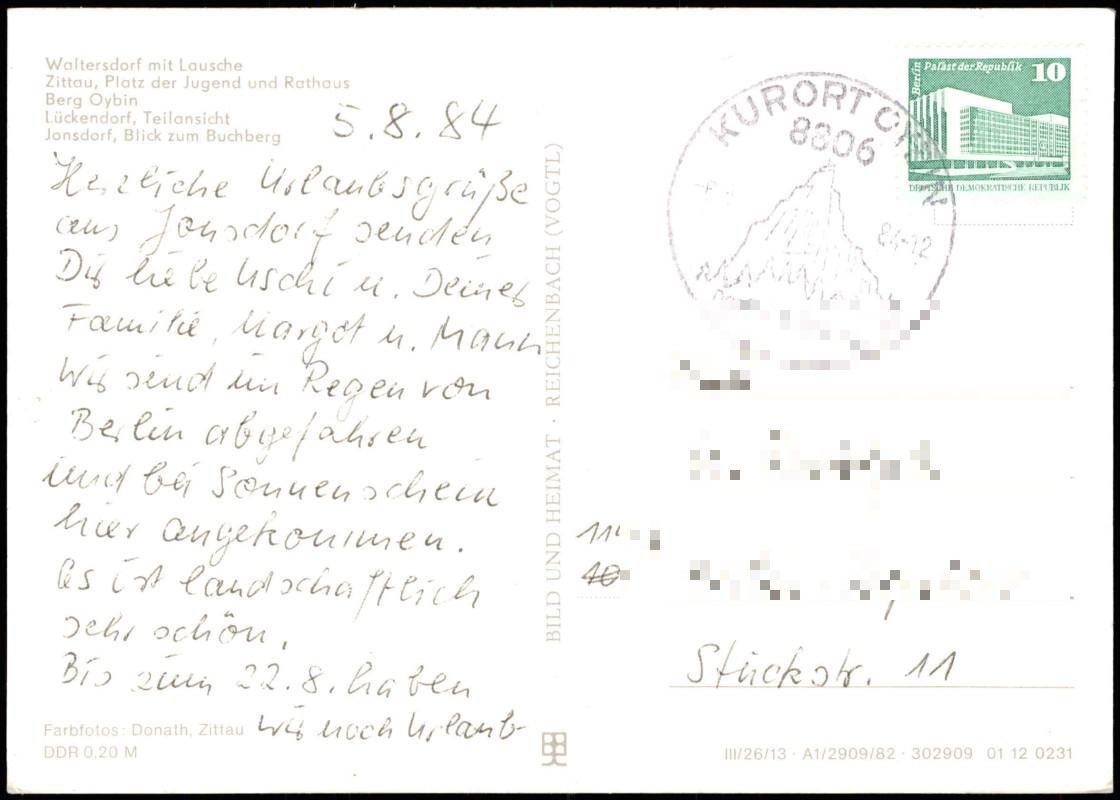 Waltersdorf mit Lausche
Zittau, Platz der Jugend und Rathaus
Berg Oybin
Lückendorf, Teilansicht
Jonsdorf, Blick zum Buchberg
5.8.84
Herzliche Urlaubsgrüße
aus Jonsdorf senden
Dir liebe Uschi u. Deiner
Familie, Margot u. Mann
Wir sind im Regen von
Berlin abgefahren
und bei Sonnenschein
hier angekommen.
Es ist landschaftlich
sehr schön,
Bis zum 22.8. haben
wir noch Urlaub
Farbfotos: Donath, Zittau
DDR 0,20 M
BILD UND HEIMAT · REICHENBACH (VOGTL)
KURORT OYBIN
8806
84-12
Berlin Palast der Republik 10
DEUTSCHE DEMOKRATISCHE REPUBLIK
11
Stückstr. 11
III/26/13 · A1/2909/82 · 302909 01 12 0231